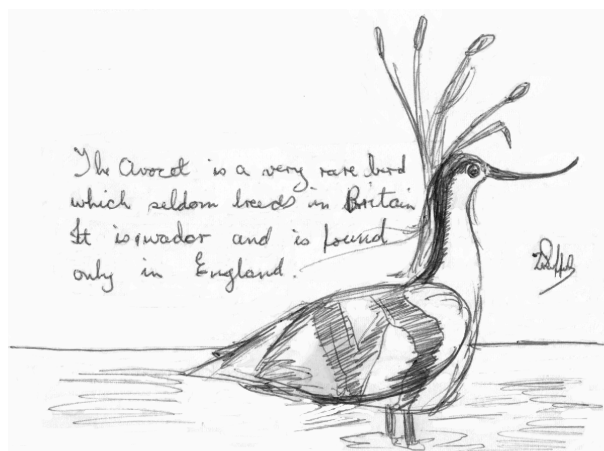 The Avocet is a very rare bird
which seldom breeds in Britain
It is wador and is found
only in England.